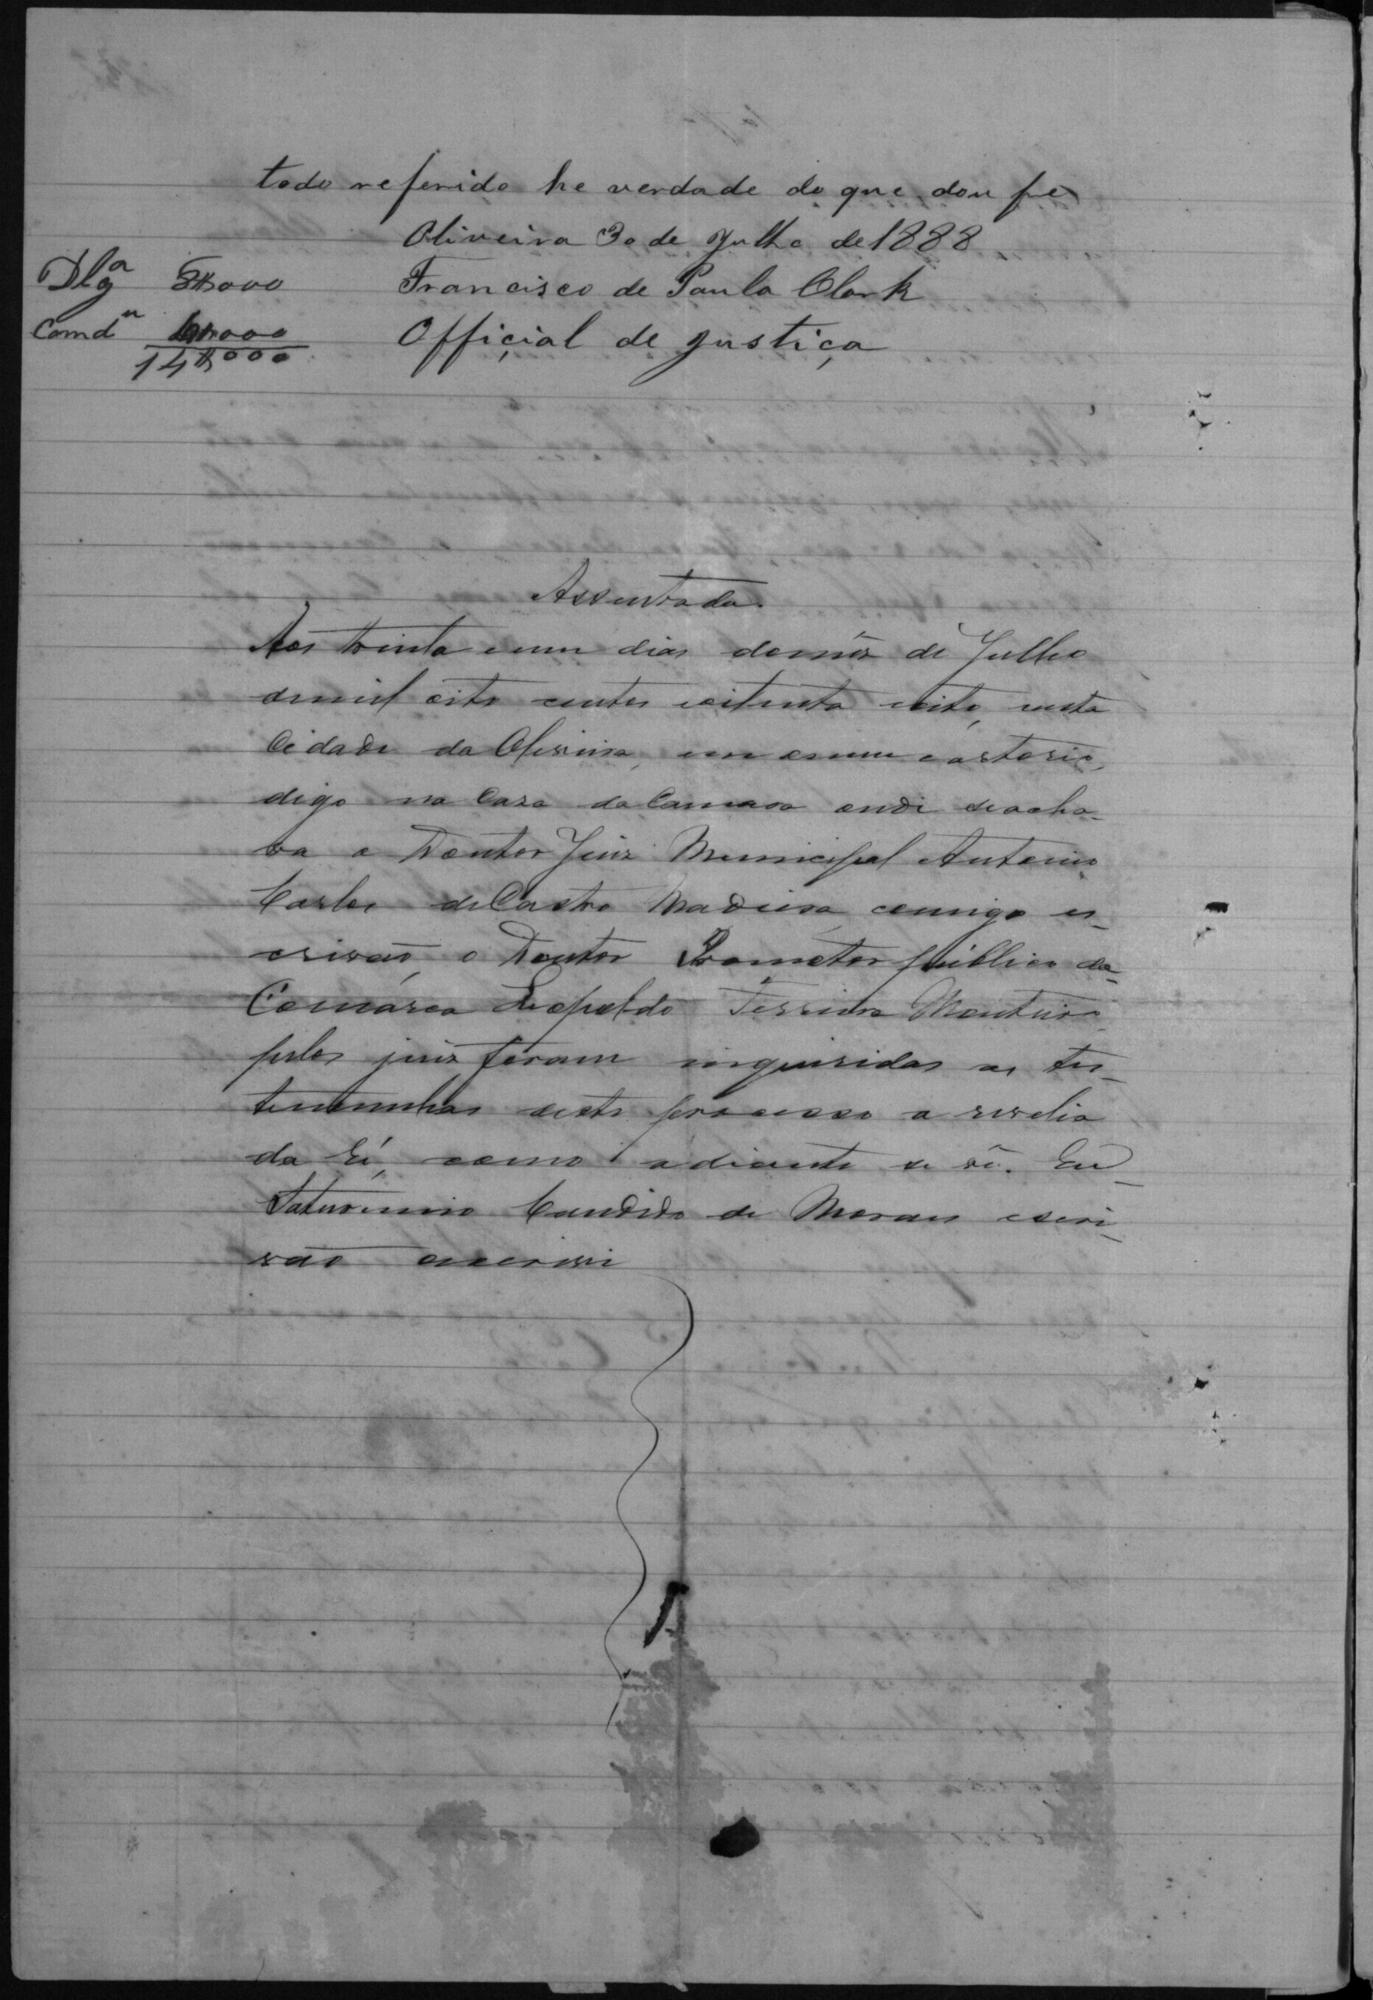 todo referido he verdade do que dou fe
Oliveira 30 de Julho de 1888
Dlga 8$000 Francisco de Paula Clark
Comdn 6$000 Official de justiça
14$000
Assentada.
Aos trinta e um dias do mês de Julho
de mil oito centos e oitenta e oito, nesta
Cidade da Oliveira, em o meu cartorio,
digo na Casa da Camara onde se acha-
va o Doutor Juiz Municipal Antonio
Carlos de Castro Madeira comigo es-
crivão, o Doutor Promotor publico da
Comarca Leopoldo Ferreira Monteiro
pelo juiz foram inquiridas as tes-
temunhas deste processo a revelia
da Ré, como adiante se vê. Eu
Saturnino Candido de Moraes escri-
vão escrevi